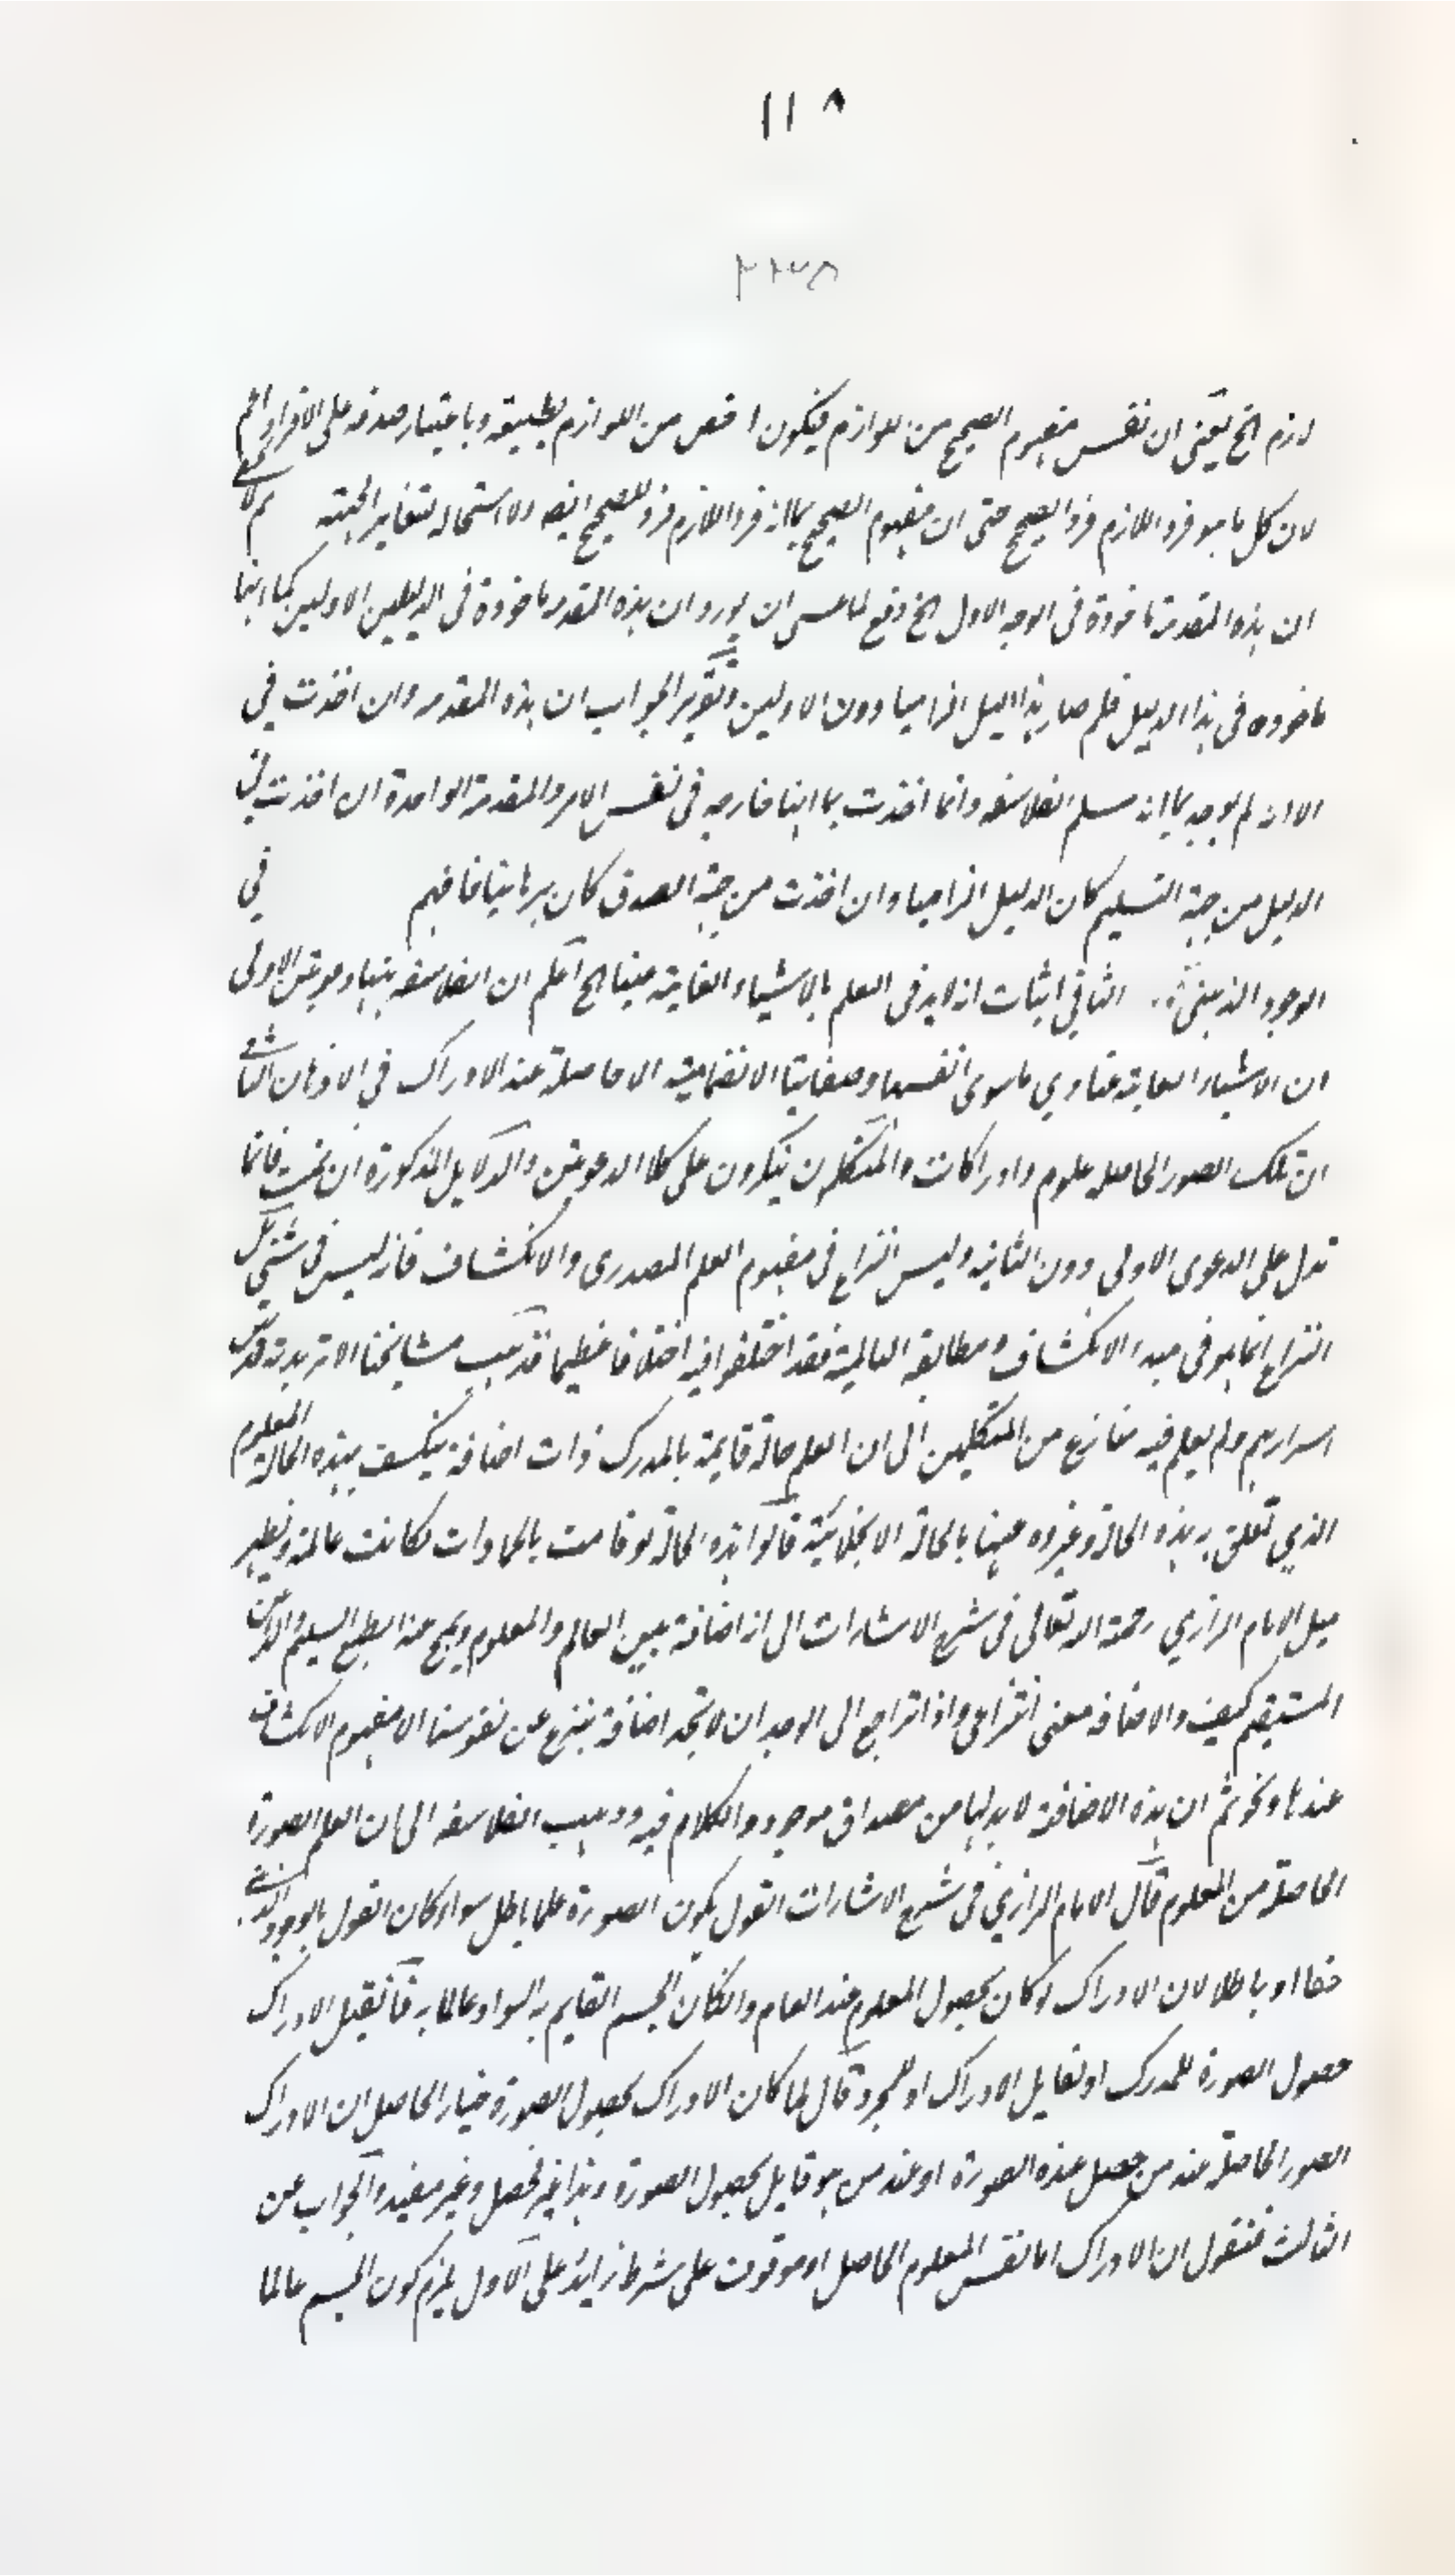 ١١٨
لازم الخ يعني ان نفس مفهوم الصحيح من لوازم فيكون اخص من اللوازم بطبيعته وباعتبار صدقه على الافراد اعم
لان كل ما هو فرد اللازم فرد الصحيح حتى ان مفهوم الصحيح بما انه فرد اللازم فرد للصحيح ايضا ولا استحالة لتغاير الجهة
ان هذه المقدمة ماخوذة في الوجه الاول الخ دفع لما عسى ان يورد ان هذه المقدمه ماخوذة في الدليلين الاولين كما انها
ماخوذه في هذا الدليل فلم صار هذا الدليل الزاميا دون الاولين وتقرير الجواب ان هذه المقدمه وان اخذت في
الا انه لم يوجد بما انه مسلم الفلاسفه وانما اخذت بما انها خارجه في نفس الامر والمقدمة الواحدة ان اخذت في
الدليل من جهة التسليم كان الدليل الزاميا وان اخذت من جهة الصدق كان برهانيا فافهم في
الوجود الذهني الثاني اثبات انه لابد في العلم بالاشياء الغايبة عينا الخ اعلم ان الفلاسفه بنهبا دعويين الاولى
ان الاشياء الغايبة عنا وهي ما سوى انفسها وصفاتها الانضمامية الا حاصلة عند الادراك في الاذهان الثانيه
ان تلك الصور الحاصله علوم وادراكات والمتكلمون ينكرون على كلا الدعويين والدلايل المذكورة ان تمت فانما
تدل على الدعوى الاولى دون الثانيه وليس النزاع في مفهوم العلم المصدري والانكشاف فانه ليس في شئ بل
النزاع انما هو في مبدا الانكشاف ومطابقه العالمية فقد اختلفوا فيه اختلافا عظيما فذهب مشايخنا الماتريدية قدس
اسرارهم ولم يعلم فيه منازع من المتكلمين الى ان العلم حالة قايمة بالمدرك ذات اضافة ينكشف بهذه الحالة المعلوم
الذي تعلق به هذه الحالة وعبروه عنها بالحالة الانجلائية قالوا هذه الحالة لو قامت بالجمادات لكانت عالمة ويظهر
ميل الامام الرازي رحمة الله تعالى في شرح الاشارات الى انه اضافة بين العالم والمعلوم ويمج عنه الطبع السليم والذهن
المستقيم كيف والاضافه معنى انتزاعي واذا تراجع الى الوجدان لا تجد اضافة ينتزع عن نفوسنا الا مفهوم الانكشاف
عندها ونحو ثم ان هذه الاضافة لا بد لها من مصداق موجود والكلام فيه وذهب الفلاسفه الى ان العلم الصورة
الحاصلة من المعلوم قال الامام الرازي في شرح الاشارات القول بكون الصورة علما باطل سواء كان القول بالوجود الذهني
حقا او باطلا لان الادراك لو كان بحصول المعلوم عند العالم والكان الجسم القايم به السواد عالما به فان قيل الادراك
حصول الصورة للمدرك او لقابل الادراك او للمجرد قال لما كان الادراك بحصول الصورة فيصار الحاصل ان الادراك
الصور الحاصلة عند من حصل عنده الصورة او عند من هو قابل بحصول الصورة وهذا غير محصل وغير مفيد والجواب عن
الثالث فنقول ان الادراك اما نفس المعلوم الحاصل او موقوف على شرط زايد على الاول يلزم كون الجسم عالما